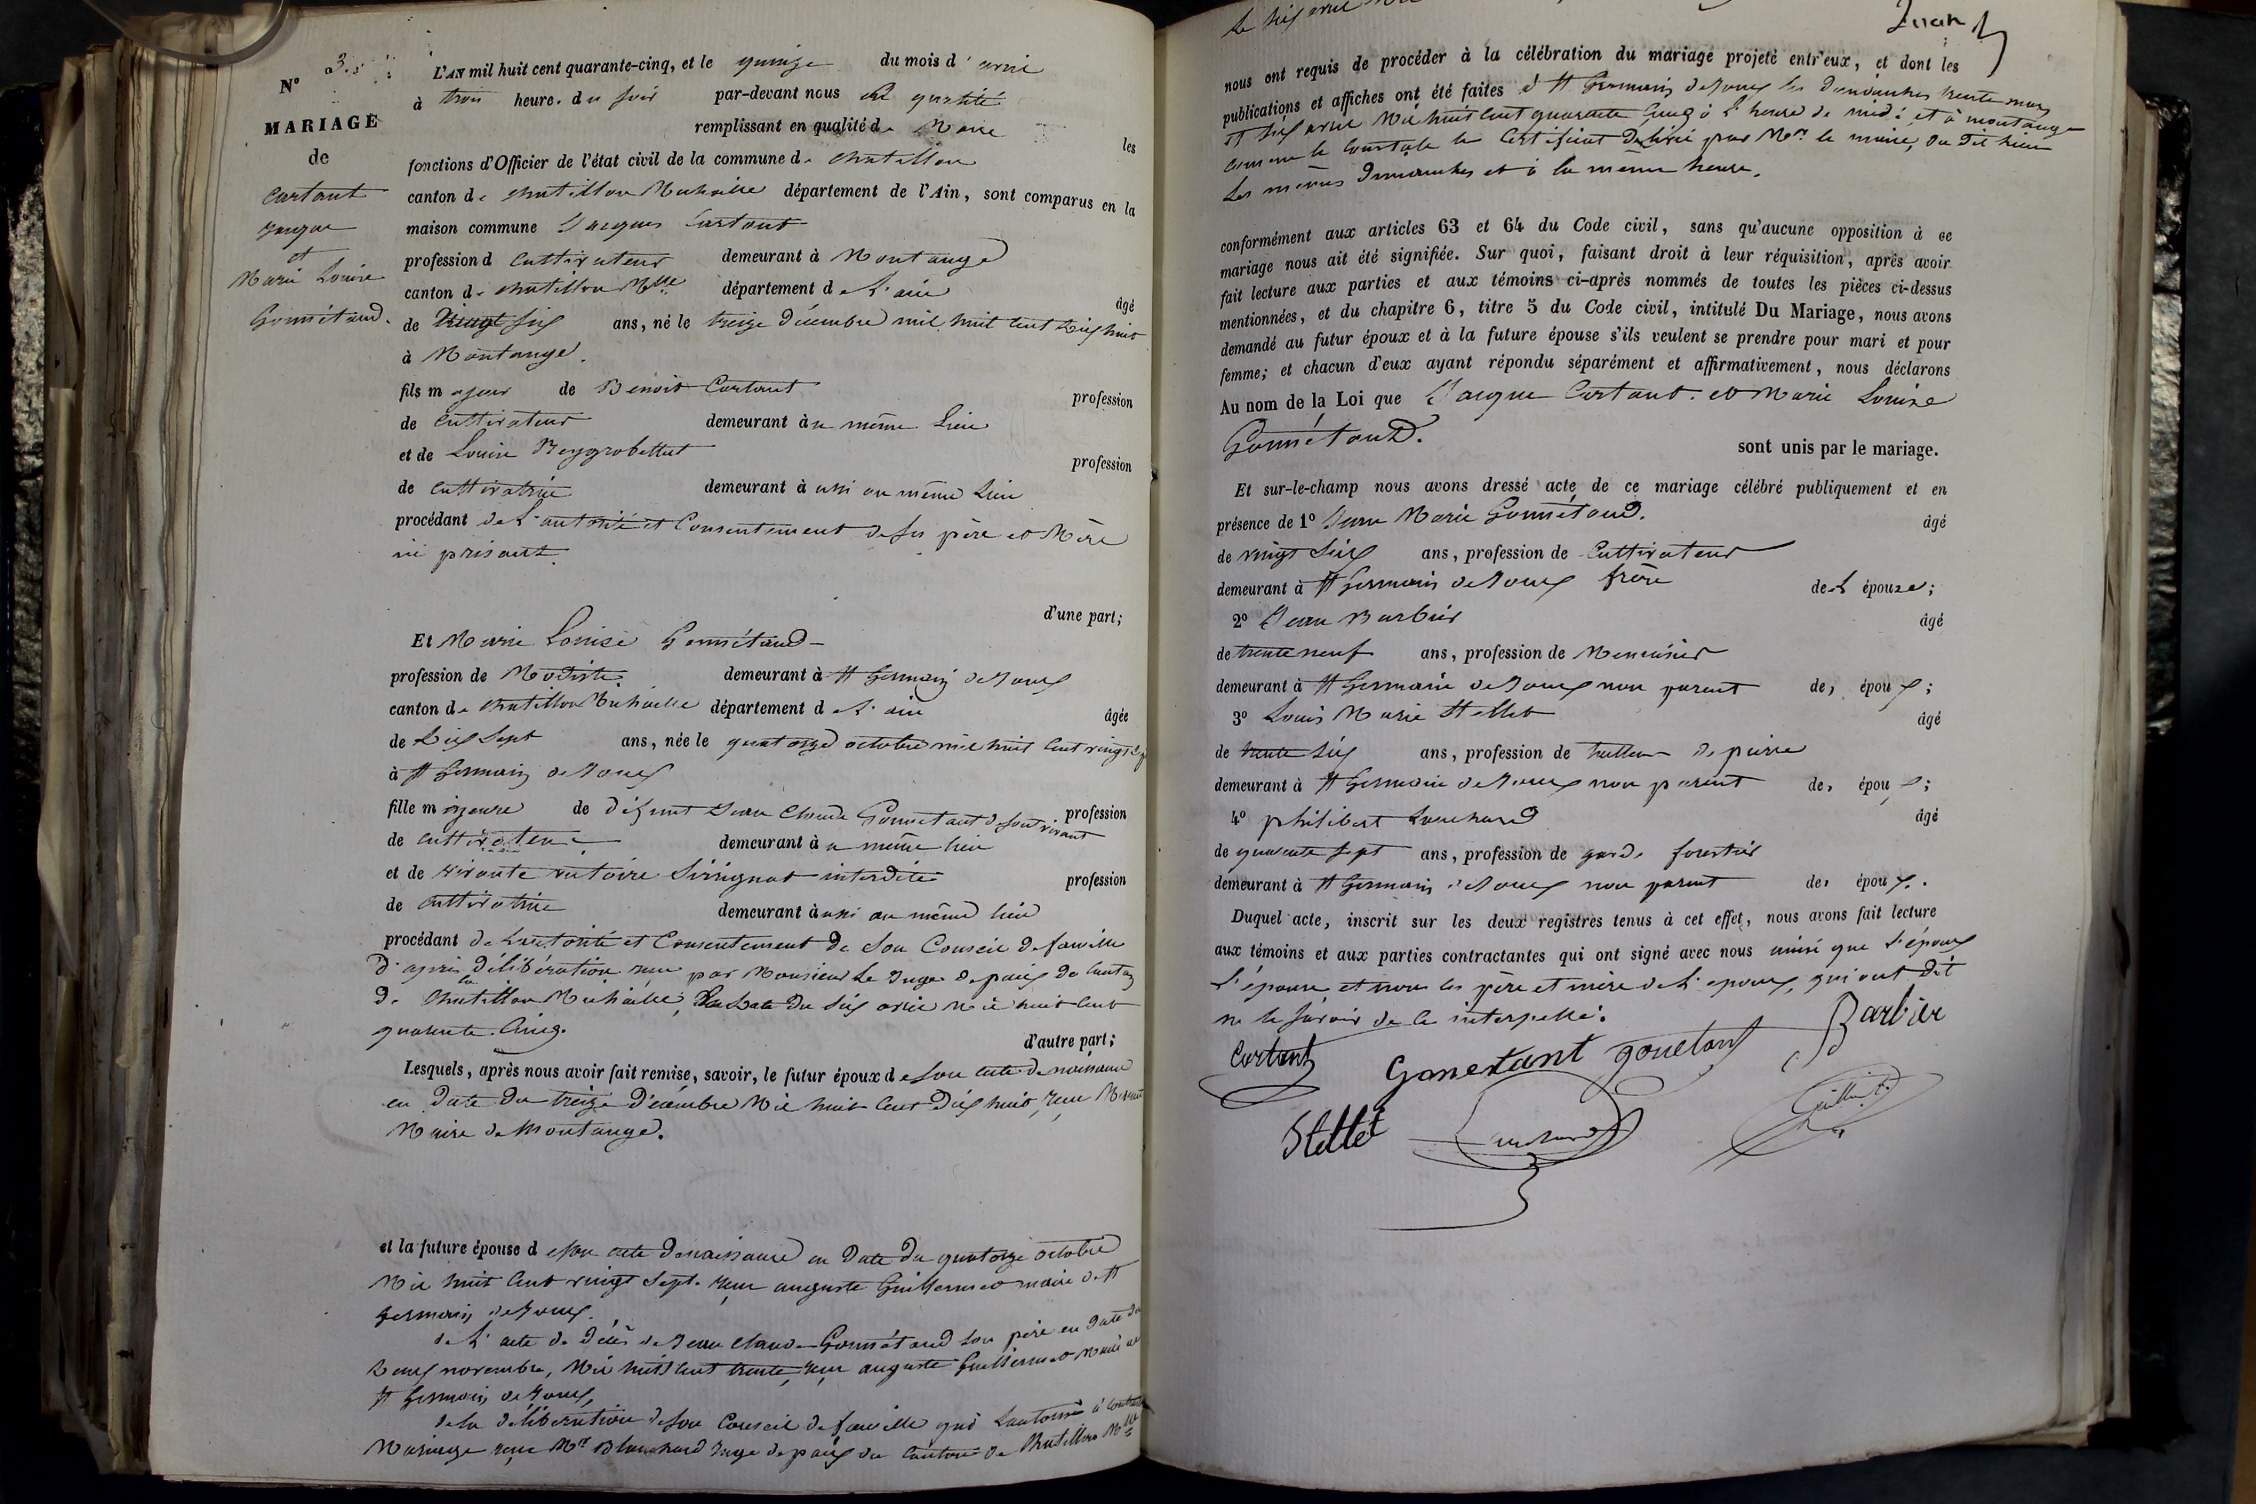 N° 3
MARIAGE
de
Cartant
Jacque
et
Marie Louise
Gonnétand.
L'AN mil huit cent quarante-cinq, et le quinze du mois d'avril
à trois heures du soir par-devant nous
remplissant en qualité de Maire les
fonctions d'Officier de l'état civil de la commune de Chatillon
canton de Chatillon Michaille département de l'Ain, sont comparus en la
maison commune Jacques Cartant
profession d cultivateur demeurant à Montange
canton de Chatillon Mlle département de L'ain âgé
de vingt six ans, né le treize décembre mil huit cent dix huit
à Montange.
fils majeur de Benoit Cartant profession
de cultivateur demeurant au même Lieu
et de Louise profession
de cultivatrice demeurant à ussi au même Lieu
procédant de L'autorité et Consentement de ses père et Mère
ici présents.
d'une part;
Et Marie Louise Gonnétand
profession de Modiste demeurant à St Germain de Joux
canton de Chatillon Michaille département de L'ain âgée
de dix sept ans, née le quatorze octobre mil huit cent vingt sept
à St Germain de Joux
fille mineure de défunt Jean Claude Gonnetand de son vivant profession
de cultivateur demeurant au même lieu
et de vivante interdite profession
de cultivatrice demeurant à ussi au même lieu
procédant de L'autorité et Consentement de son Conseil de famille
d'après délibération reçue par Monsieur Le Juge de paix du Canton
de Chatillon Michaille, en date du six avril Mil huit cent
quarente Cinq.
d'autre part;
Lesquels, après nous avoir fait remise, savoir, le futur époux de son acte de naissance
en Date du treize Décembre Mil huit Cent Dix huit, reçu
Maire de Montange.
et la future épouse de son acte de naissance en Date du quatorze octobre
Mil huit Cent vingt Sept. reçu auguste Guillermet maire de St
Germain de Joux.
de L'acte de décès de Jean Claude Gonnétand son père en date du
novembre, Mil huit Cent trente, reçu auguste Guillermet Maire de
St Germain de Joux,
de la délibération de son Conseil de famille qui L'autorise à contracter
Mariage reçue Mr Blanchard Juge de paix du Canton de Chatillon Mlle
Le dix avril
nous ont requis de procéder à la célébration du mariage projeté entr'eux, et dont les
publications et affiches ont été faites à St Germain de Joux les dimanches trente mars
et six avril Mil huit Cent quarante Cinq à L'heure de midi et à montange
comme le Constate le Certificat Délivré par Mr le maire, du Dit lieu
Les mêmes Dimanches et à la même heure.
conformément aux articles 63 et 64 du Code civil, sans qu'aucune opposition à ce
mariage nous ait été signifiée. Sur quoi, faisant droit à leur réquisition, après avoir
fait lecture aux parties et aux témoins ci-après nommés de toutes les pièces ci-dessus
mentionnées, et du chapitre 6, titre 5 du Code civil, intitulé Du Mariage, nous avons
demandé au futur époux et à la future épouse s'ils veulent se prendre pour mari et pour
femme; et chacun d'eux ayant répondu séparément et affirmativement, nous déclarons
Au nom de la Loi que Jacque Cartant et Marie Louise
Gonnétand.
sont unis par le mariage.
Et sur-le-champ nous avons dressé acte de ce mariage célébré publiquement et en
présence de 1° Jean Marie Gonnétand. âgé
de vingt six ans, profession de Cultivateur
demeurant à St Germain de Joux frère de L épouse;
2° Jean Barbier âgé
de trente neuf ans, profession de Menuisier
demeurant à St Germain de Joux non parent des époux;
3° Louis Marie Stellet âgé
de trente six ans, profession de tailleur de pierre
demeurant à St Germain de Joux non parent des époux;
4° philibert Louchard âgé
de quarente sept ans, profession de garde forestier
demeurant à St Germain de Joux non parent des époux.
Duquel acte, inscrit sur les deux registres tenus à cet effet, nous avons fait lecture
aux témoins et aux parties contractantes qui ont signé avec nous ainsi que L'époux
L'épouse et non les père et mère de L'époux, qui ont dit
ne le savoir de ce interpellé.
Cartant Gonetant gonetant Barbier
Stellet